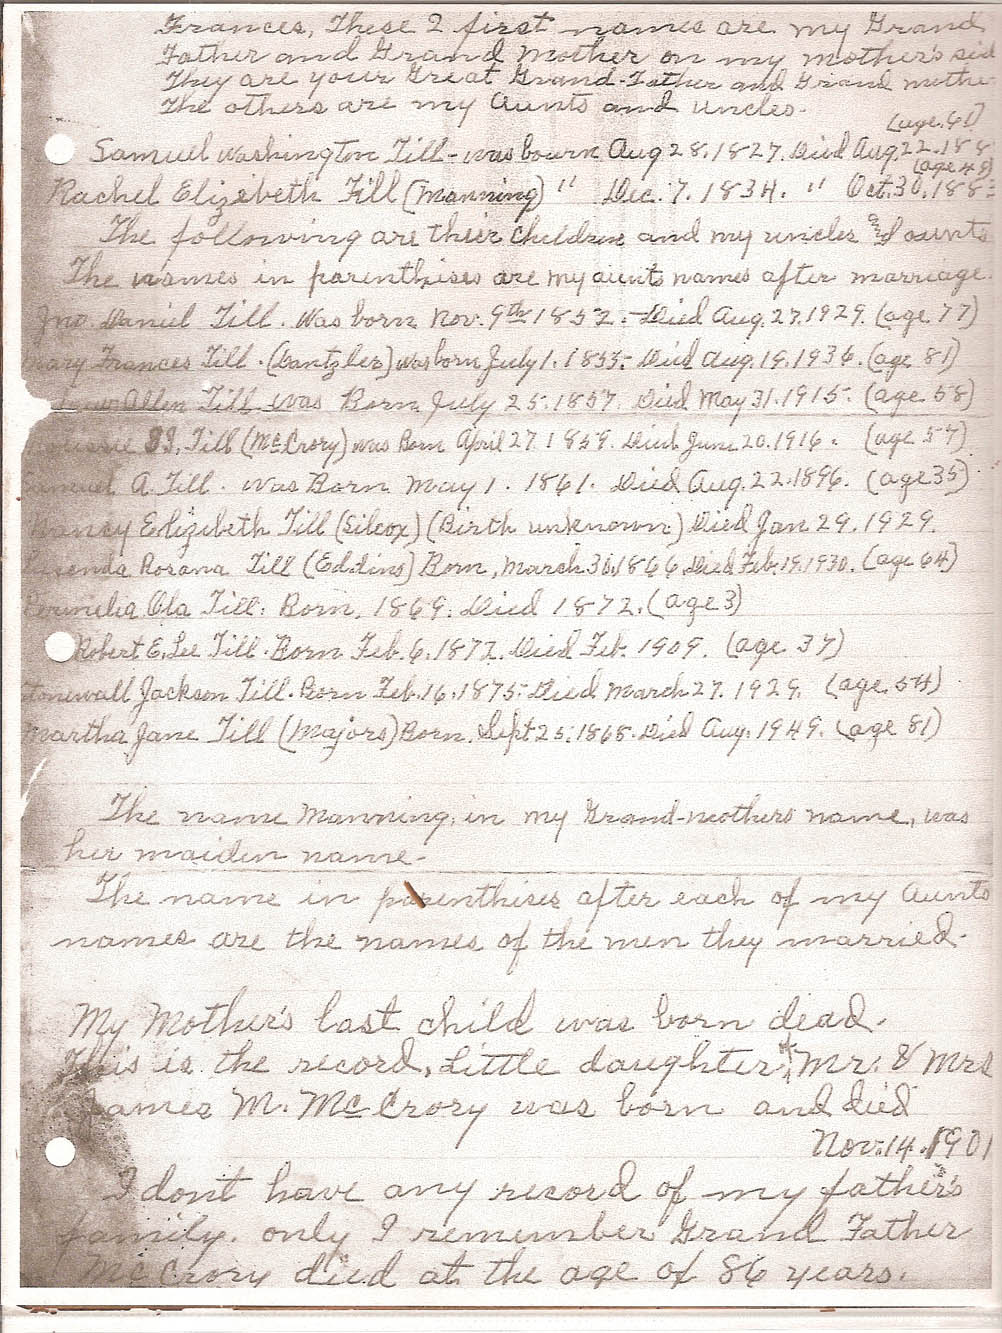 Frances, These 2 first names are my Grand
Father and Grand Mother on my mother's sid
They are your Great Grand-Father and Grand mothe
The others are my Aunts and uncles.
(age 61)
Samuel Washington Till - was bourn Aug 28, 1827. Died Aug 22. 188
(age 48)
Rachel Elizebeth Till (Manning) " Dec. 7. 1834. " Oct. 30, 188
The following are their children and my uncles and aunts
The names in parenthises are my aunts names after marriage.
Jno. Daniel Till. Was born Nov. 9th 1852. - Died Aug. 27. 1929. (age 77)
Mary Frances Till. (Dantzler) was born July 1. 1855. Died Aug. 19, 1936. (age 81)
Allen Till was Born July 25. 1857. Died May 31. 1915. (age 58)
Till (McCrory) was Born April 27 1859. Died June 20. 1916. (age 57)
Samuel A. Till. was Born May 1. 1861. Died Aug. 22. 1896. (age 35)
Nancy Elizibeth Till (Silcox) (Birth unknown) Died Jan 29. 1929.
Rosana Till (Eddins) Born, March 30, 1866 Died Feb. 19, 1930. (age 64)
Permelia Ola Till. Born, 1869. Died 1872. (age 3)
Robert E. Lee Till. Born Feb. 6. 1872. Died Feb. 1909. (age 37)
Stonewall Jackson Till. Born Feb. 16. 1875. Died March 27. 1929. (age 54)
Martha Jane Till (Majors) Born. Sept 25. 1868. Died Aug. 1949. (age 81)
The name Manning, in my Grand-mothers name, was
her maiden name-
The name in parenthises after each of my Aunts
names are the names of the men they married.
My Mother's last child was born dead.
This is the record, Little daughter of Mr. & Mrs
James M. McCrory was born and died
Nov. 14. 1901
I dont have any record of my father's
family. only I remember Grand Father
McCrory died at the age of 86 years.